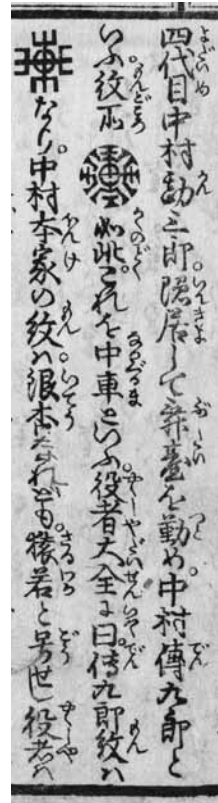 四代目中村勘三郎。隠居して舞臺を勤め。中村傳九郎と
いふ。紋所 如此。これを中車といふ。役者大全に曰。傳九郎紋ハ
なり。中村本家の紋ハ。銀杏なれども。猿若と号せし役者ハ